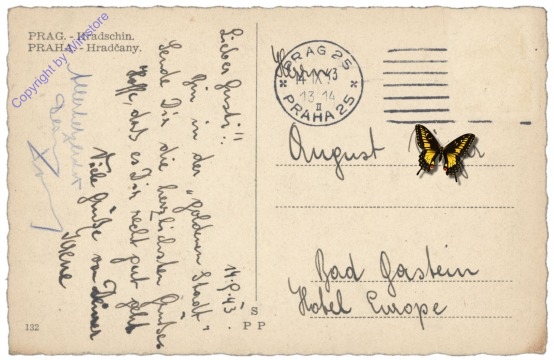 PRAG. - Hradschin.
PRAHA. - Hradčany.
Copyright by Winstore
14.9.43.
Lieber Gustl!!
Bin in der "goldenen Stadt",
sende Dir die herzlichsten Grüße.
Hoffe, dass es Dir recht gut geht
Viele Grüße von Deiner
Irene
Allerherzlichst
PRAG 25
14 IX 43
13-14
II
PRAHA 25
Herrn
August
Bad Gastein
Hotel Europe
132
S
P P